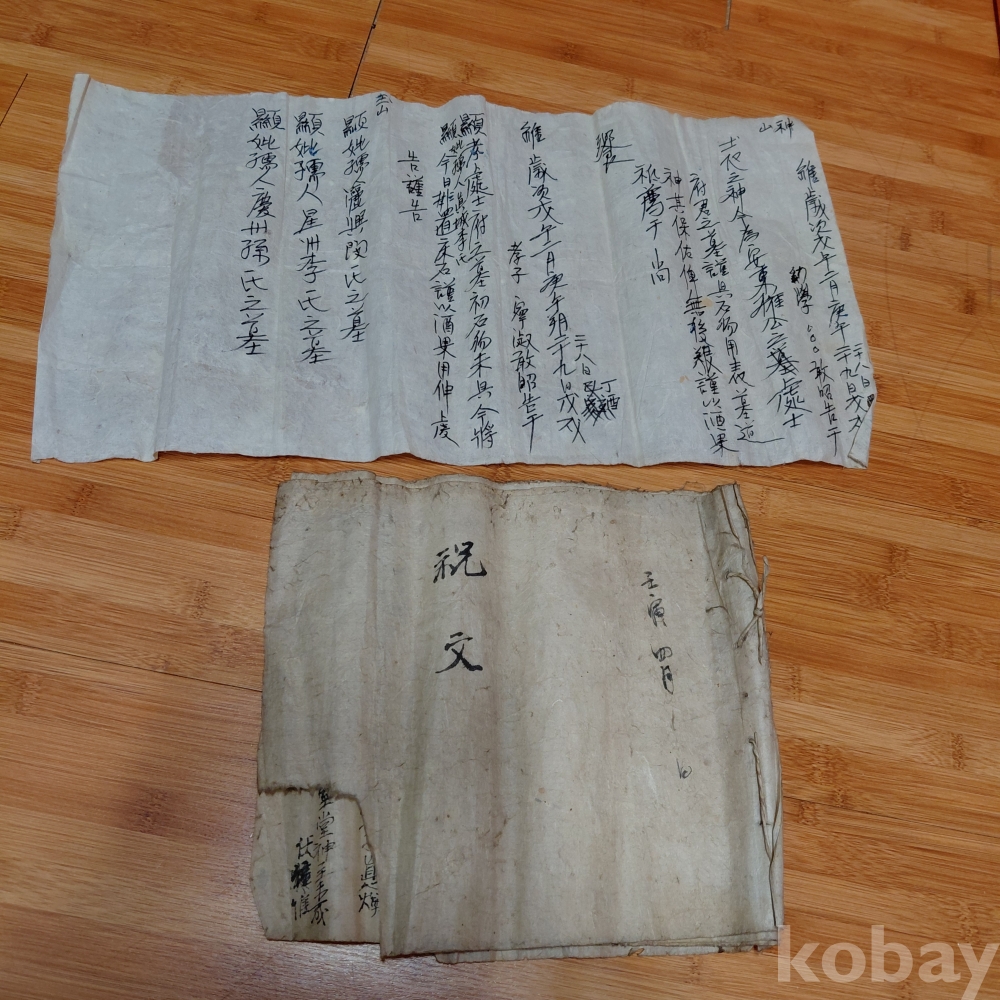 山神
維歲次戊午二月庚午二十九日戊戌
二十八日
幼學 敢昭告于
土地之神今爲安東權公之墓處士
府君之墓謹具石物用表墓道
神其保佑俾無後艱謹以酒果
祗薦于尙
饗
維歲次戊午二月庚午朔二十九日戊戌
二十八日丁酉
孝子寧淑敢昭告于
顯考處士府君之墓初石物未具今將
顯妣孺人眞城李氏
今日排置床石謹以酒果用伸虔
告謹告
顯妣孺人驪興閔氏之墓
顯妣孺人星州李氏之墓
顯妣孺人慶州孫氏之墓
壬寅四月 日
祝文
伏惟
kobay